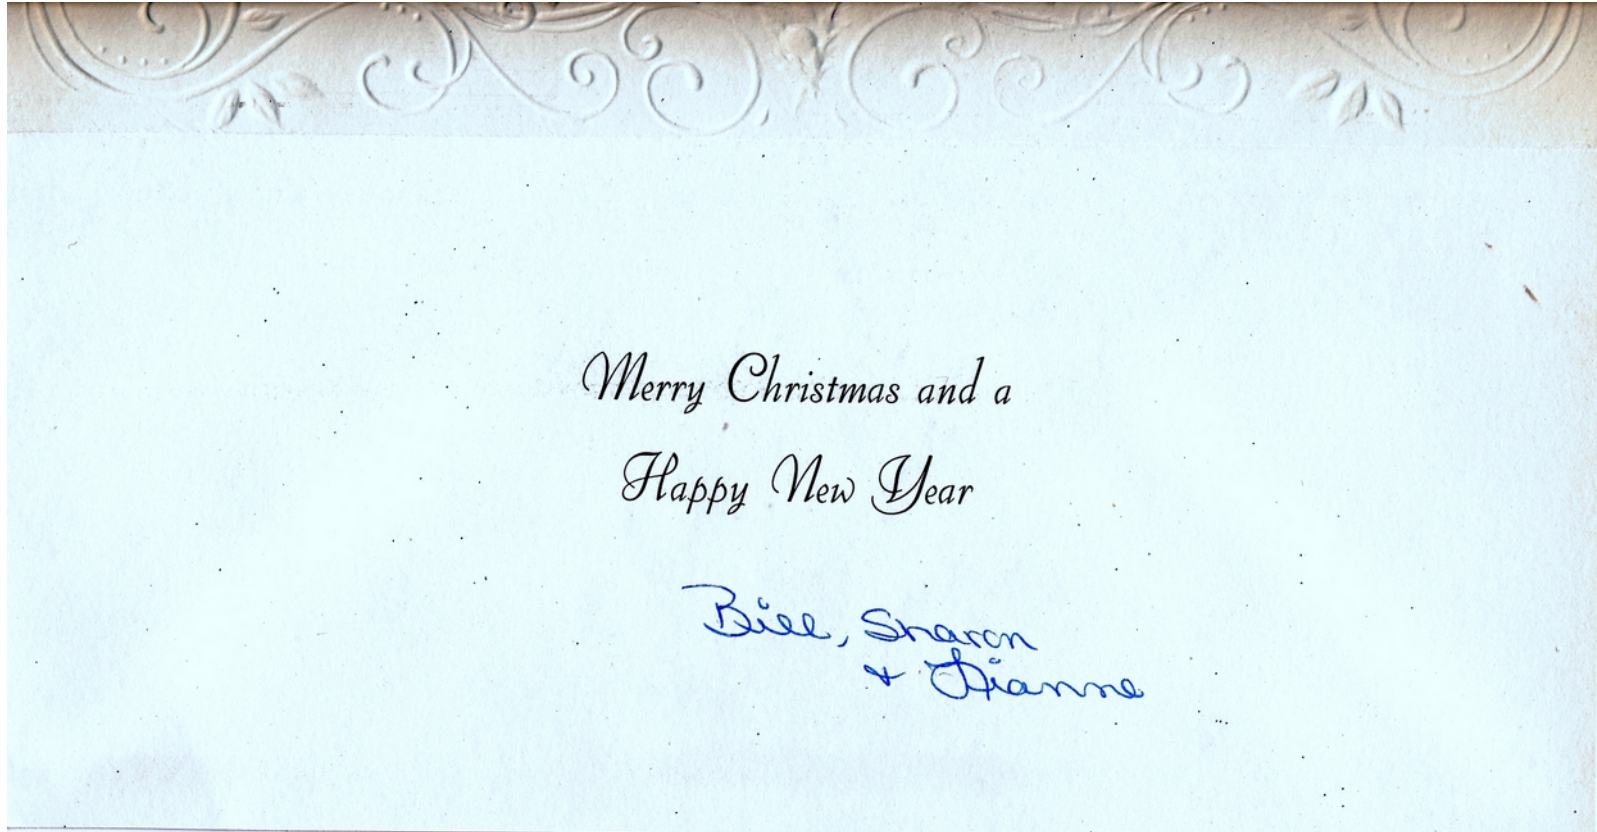 Merry Christmas and a
Happy New Year
Bill, Sharon
& Dianne